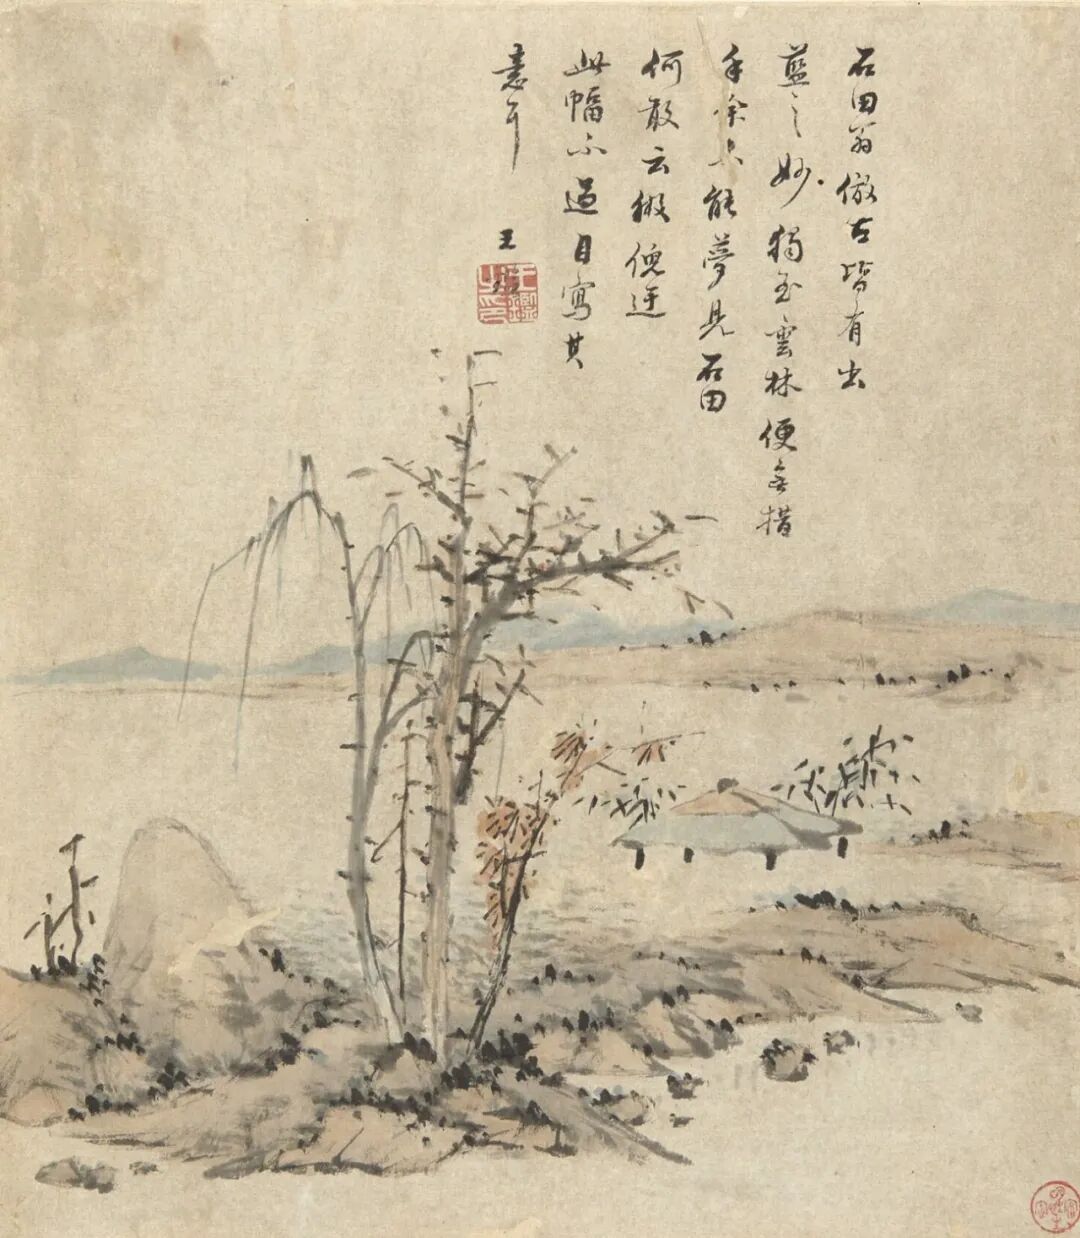 石田翁倣古皆有出
藍之妙獨至雲林便無措
手余上能夢見石田
何敢云倣倪迂
此幅不過自寫其
意耳
王
王鑑之印